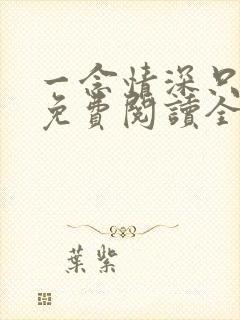 一念情深只
免費閱讀全
葉紫